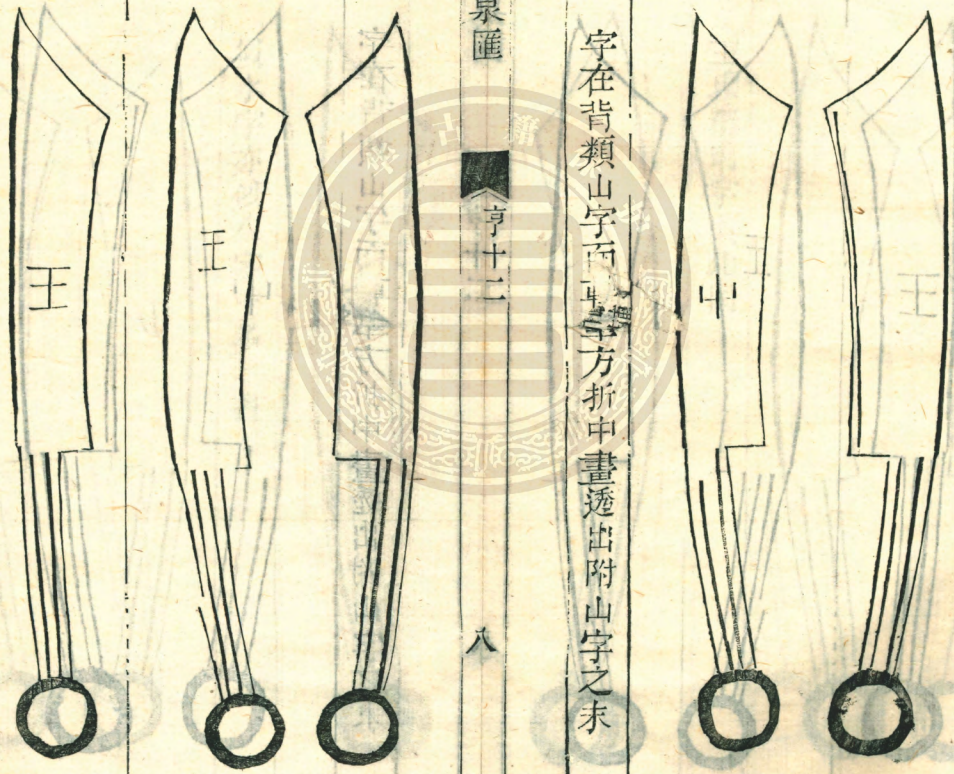 字在背類山字面
方折中畫透出附山字之末
泉匯
亨十二
八
王
王